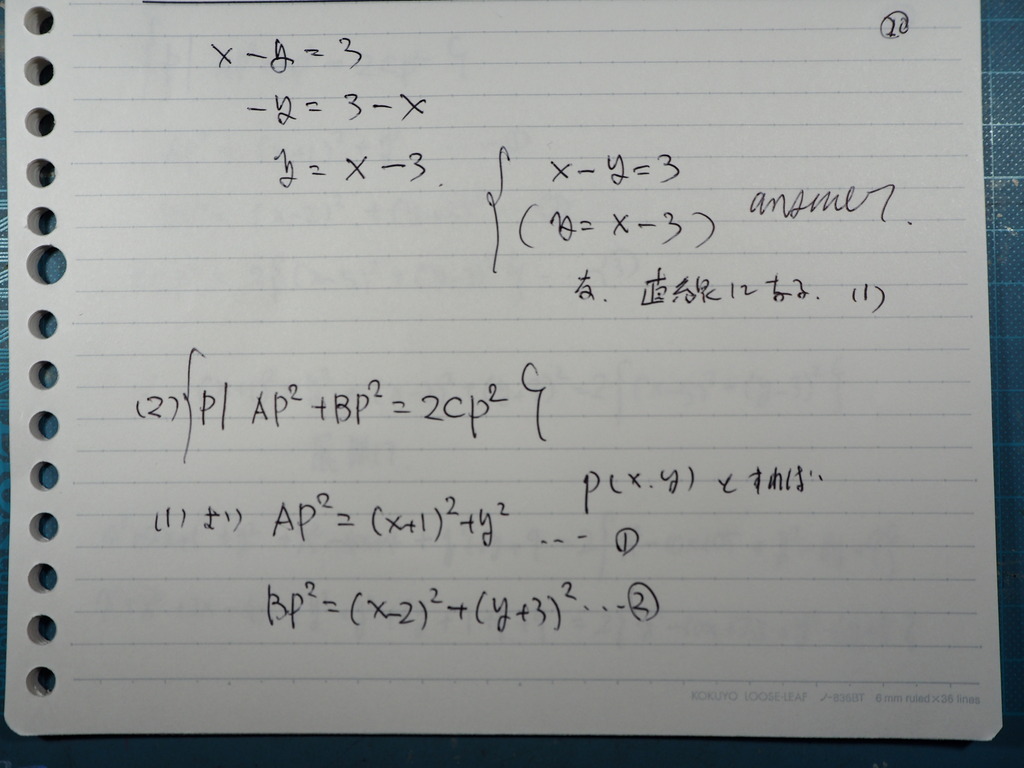 20
x - y = 3
- y = 3 - x
y = x - 3.
{ x - y = 3
( y = x - 3 ) answer.
な、直線になる. (1)
(2) { P | AP² + BP² = 2CP² }
P(x.y) とすれば、
(1) より AP² = (x+1)² + y² ... ①
BP² = (x-2)² + (y+3)² ... ②
KOKUYO LOOSE-LEAF ノ-836BT 6 mm ruled×36 lines